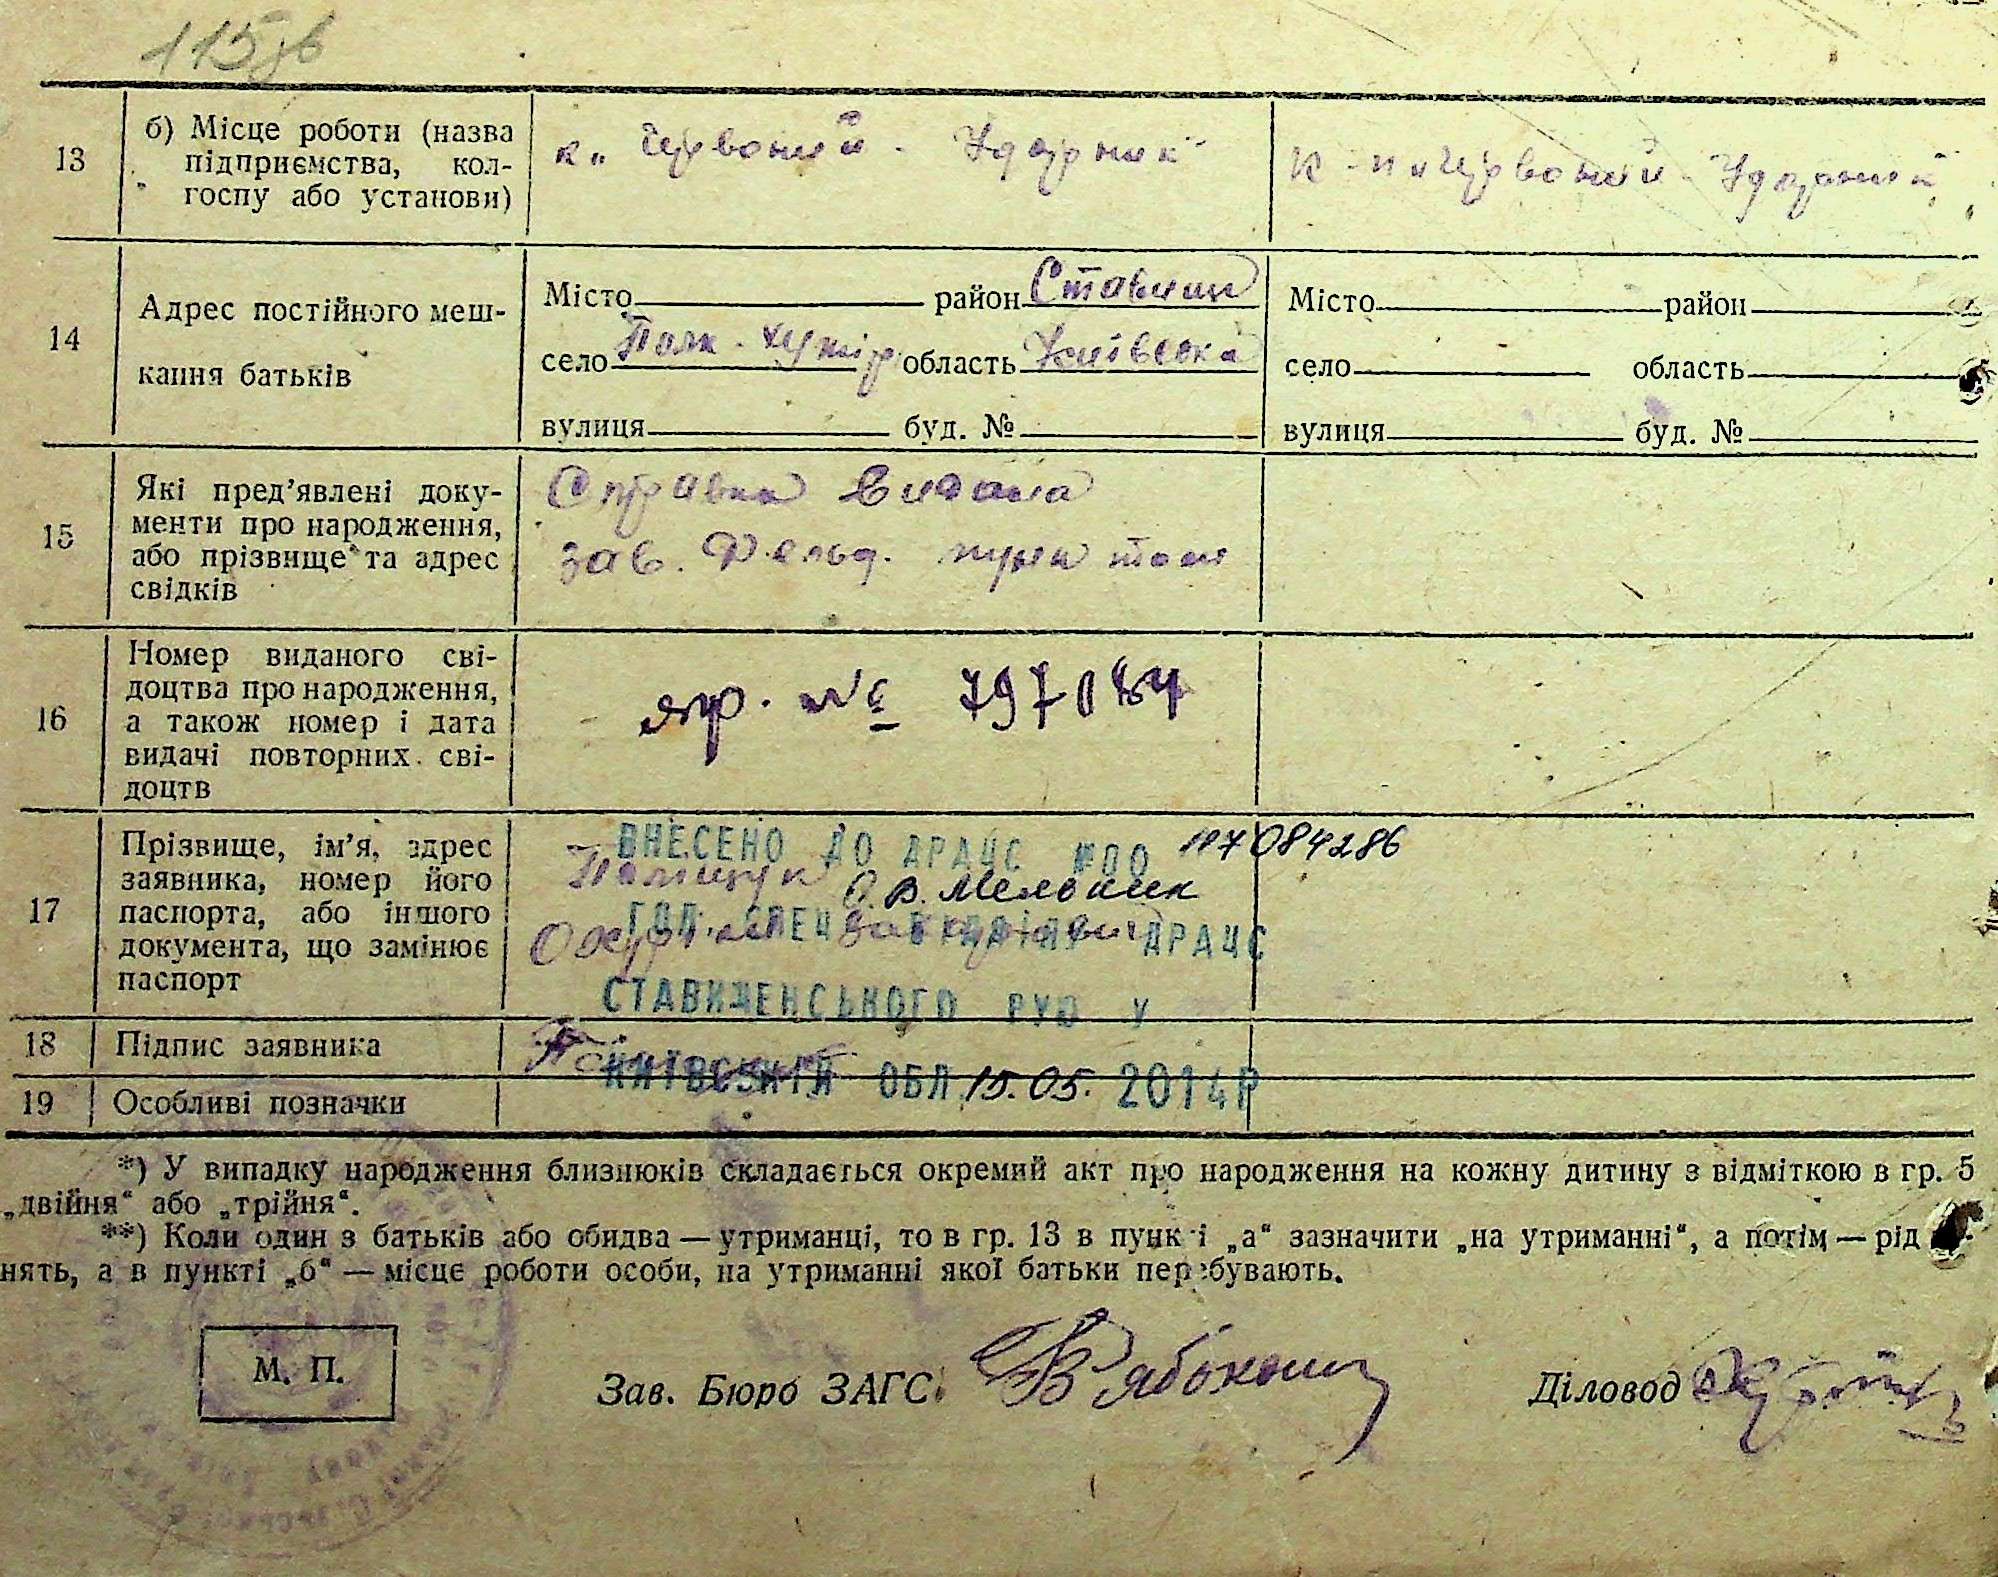 115зв
13
б) Місце роботи (назва
підприємства, кол-
госпу або установи)
к „ Червоний - Ударник"
к-п „Червоний - Ударник"
14
Адрес постійного меш-
кання батьків
Місто район Ставищ
село Полк-хутір область Київська
вулиця буд. №
Місто район
село область
вулиця буд. №
15
Які пред’явлені доку-
менти про народження,
або прізвище та адрес
свідків
Справка видана
зав. Фельд. пунктом
16
Номер виданого сві-
доцтва про народження,
а також номер і дата
видачі повторних сві-
доцтв
яр. № 797084
17
Прізвище, ім’я, адрес
заявника, номер його
паспорта, або іншого
документа, що замінює
паспорт
ВНЕСЕНО ДО ДРАЦС №00 117084286
Поліщук О.В. Мельник
ГОЛ. СПЕЦ ДРАЦС
СТАВИЩЕНСЬКОГО РУЮ У
18
Підпис заявника
КИЇВСЬКІЙ ОБЛ. 15.05. 2014Р
19
Особливі позначки
*) У випадку народження близнюків складається окремий акт про народження на кожну дитину з відміткою в гр. 5
„двійня“ або „трійня“.
**) Коли один з батьків або обидва — утриманці, то в гр. 13 в пункті „а“ зазначити „на утриманні“, а потім — рід
нять, а в пункті „б“ — місце роботи особи, на утриманні якої батьки перебувають.
М. П.
Зав. Бюро ЗАГС Рябоконь
Діловод